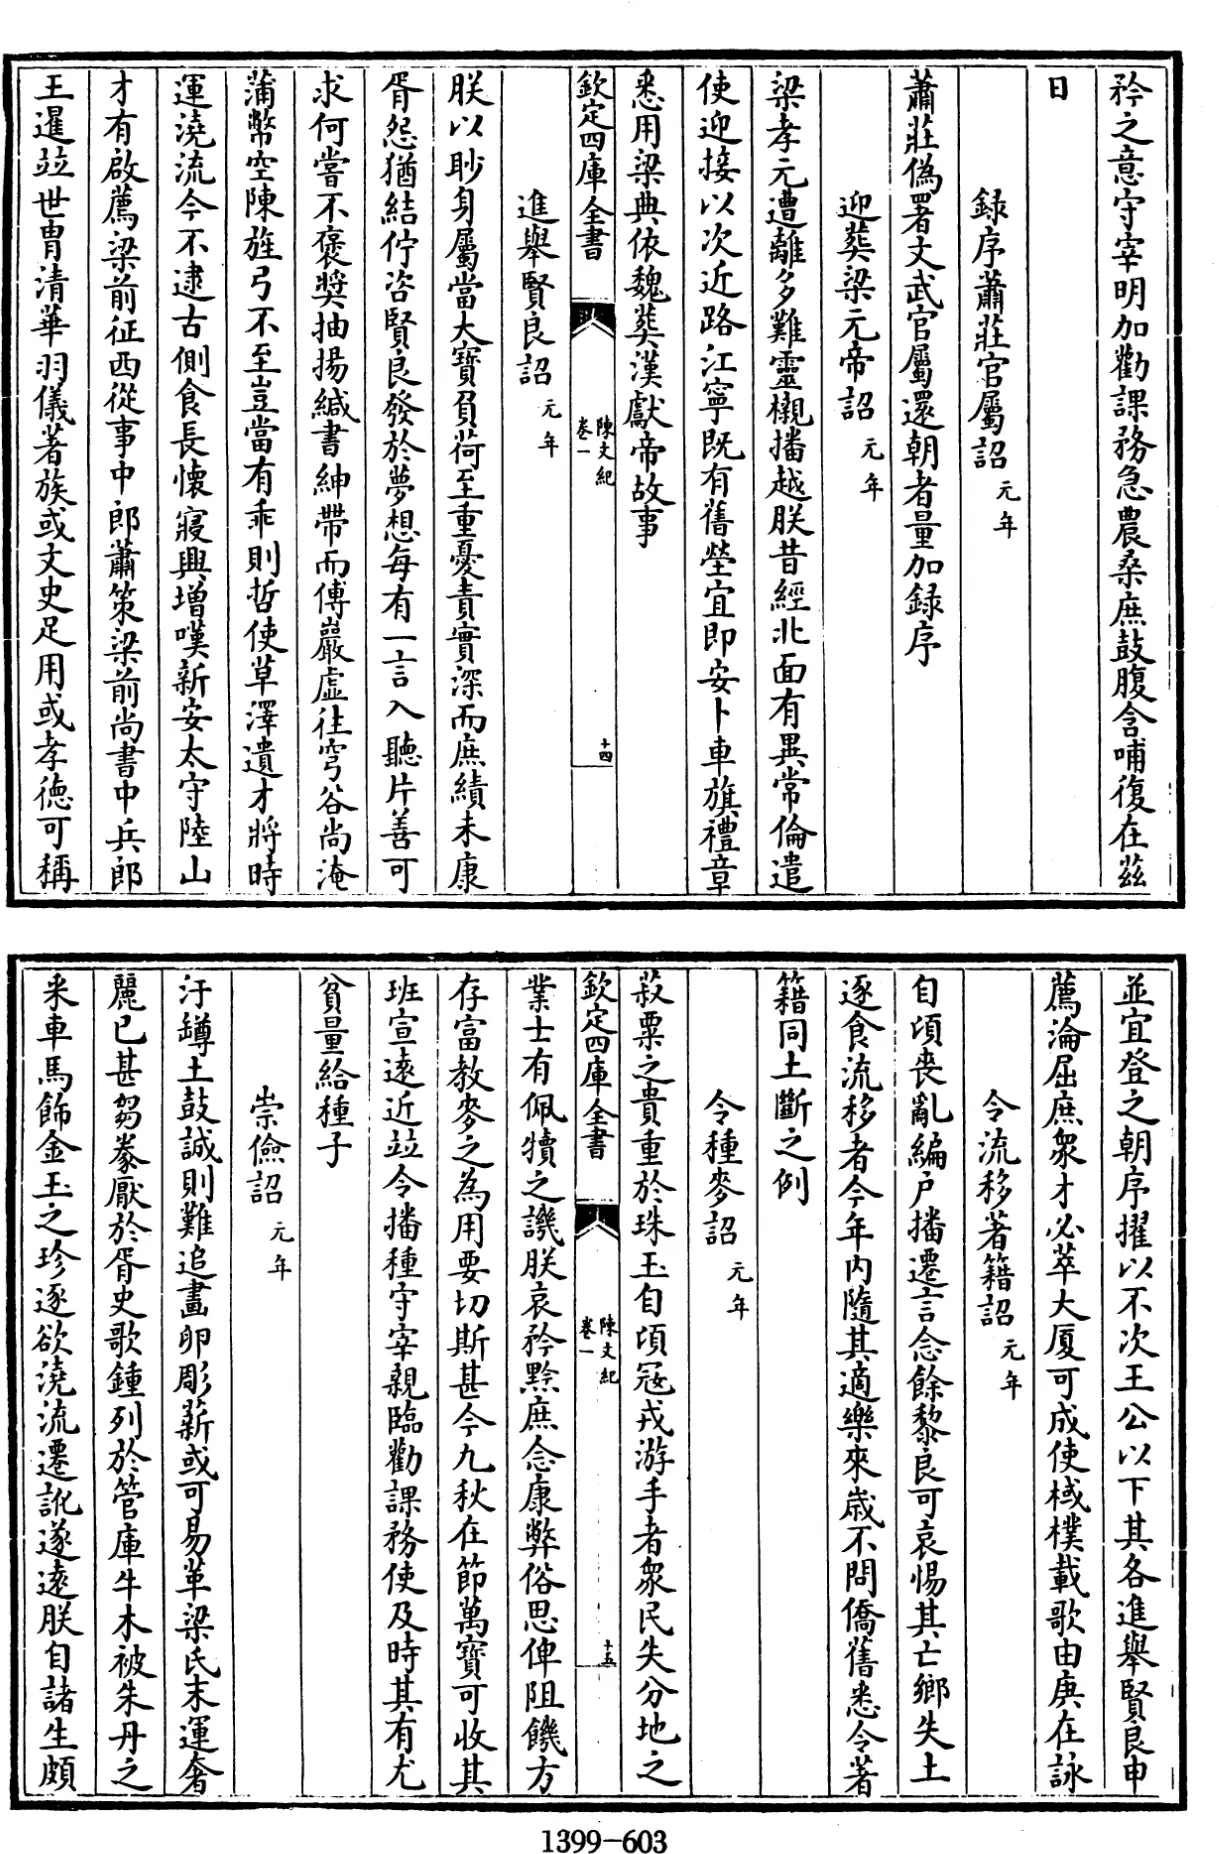 矜之意守宰明加勸課務急農桑庶鼓腹含哺復在茲
日
録序蕭莊官屬詔元年
蕭莊偽署文武官屬還朝者量加録序
迎葬梁元帝詔元年
梁孝元遭離多難靈櫬播越朕昔經北面有異常倫遣
使迎接以次近路江寧既有舊塋宜即安卜車旗禮章
悉用梁典依魏葬漢獻帝故事
欽定四庫全書
陳文紀
卷一
十四
進舉賢良詔元年
朕以眇身屬當大寶負荷至重憂責實深而庶績未康
胥怨猶結佇咨賢良發於夢想每有一言入聽片善可
求何嘗不褒奬抽揚緘書紳帶而傅巖虛往穹谷尚淹
蒲幣空陳旌弓不至豈當有乖則哲使草澤遺才將時
運澆流今不逮古側食長懷寢興增嘆新安太守陸山
才有啟薦梁前征西從事中郎蕭策梁前尚書中兵郎
王暹竝世胄清華羽儀著族或文史足用或孝德可稱
並宜登之朝序擢以不次王公以下其各進舉賢良申
薦淪屈庶衆才必萃大厦可成使棫樸載歌由庚在詠
令流移著籍詔元年
自頃喪亂編户播遷言念餘黎良可哀惕其亡鄉失土
逐食流移者今年内隨其適樂來歲不問僑舊悉令著
籍同土斷之例
令種麥詔元年
菽粟之貴重於珠玉自頃冦戎游手者衆民失分地之
欽定四庫全書
陳文紀
卷一
十五
業士有佩犢之譏朕哀矜黔庶念康弊俗思俾阻饑方
存富教麥之為用要切斯甚今九秋在節萬寶可收其
班宣遠近竝令播種守宰親臨勸課務使及時其有尤
貧量給種子
崇儉詔元年
汙罇土鼓誠則難追畫卵彫薪或可易革梁氏末運奢
麗已甚芻豢厭於胥史歌鍾列於管庫牛木被朱丹之
采車馬飾金玉之珍逐欲澆流遷訛遂遠朕自諸生頗
1399-603